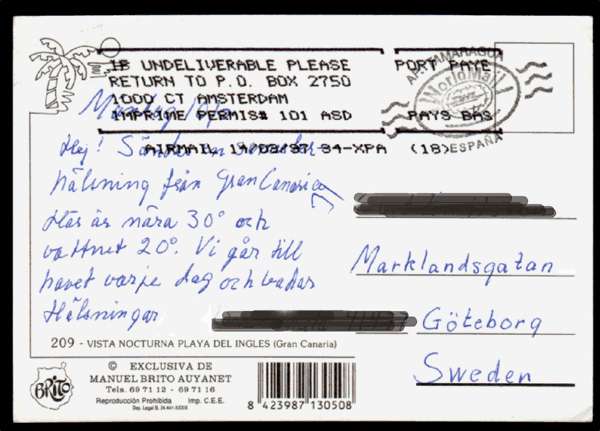 IB UNDELIVERABLE PLEASE
RETURN TO P.O. BOX 2750
1000 CT AMSTERDAM
IMPRIME PERMIS# 101 ASD
PORT PAYE
PAYS BAS
AIRMAIL 14/03/97 34-XPA (18)
WorldMail
ESPAÑA
Måndag
Hej! Sänder
hälsning från Gran Canaria
Här är nära 30° och
vattnet 20°. Vi går till
havet varje dag och badar
Hälsningar
Marklandsgatan
Göteborg
Sweden
209 - VISTA NOCTURNA PLAYA DEL INGLES (Gran Canaria)
BRITO
© EXCLUSIVA DE
MANUEL BRITO AUYANET
Tels. 69 71 12 - 69 71 16
Reproducción Prohibida Imp. C.E.E.
8 423987 130508